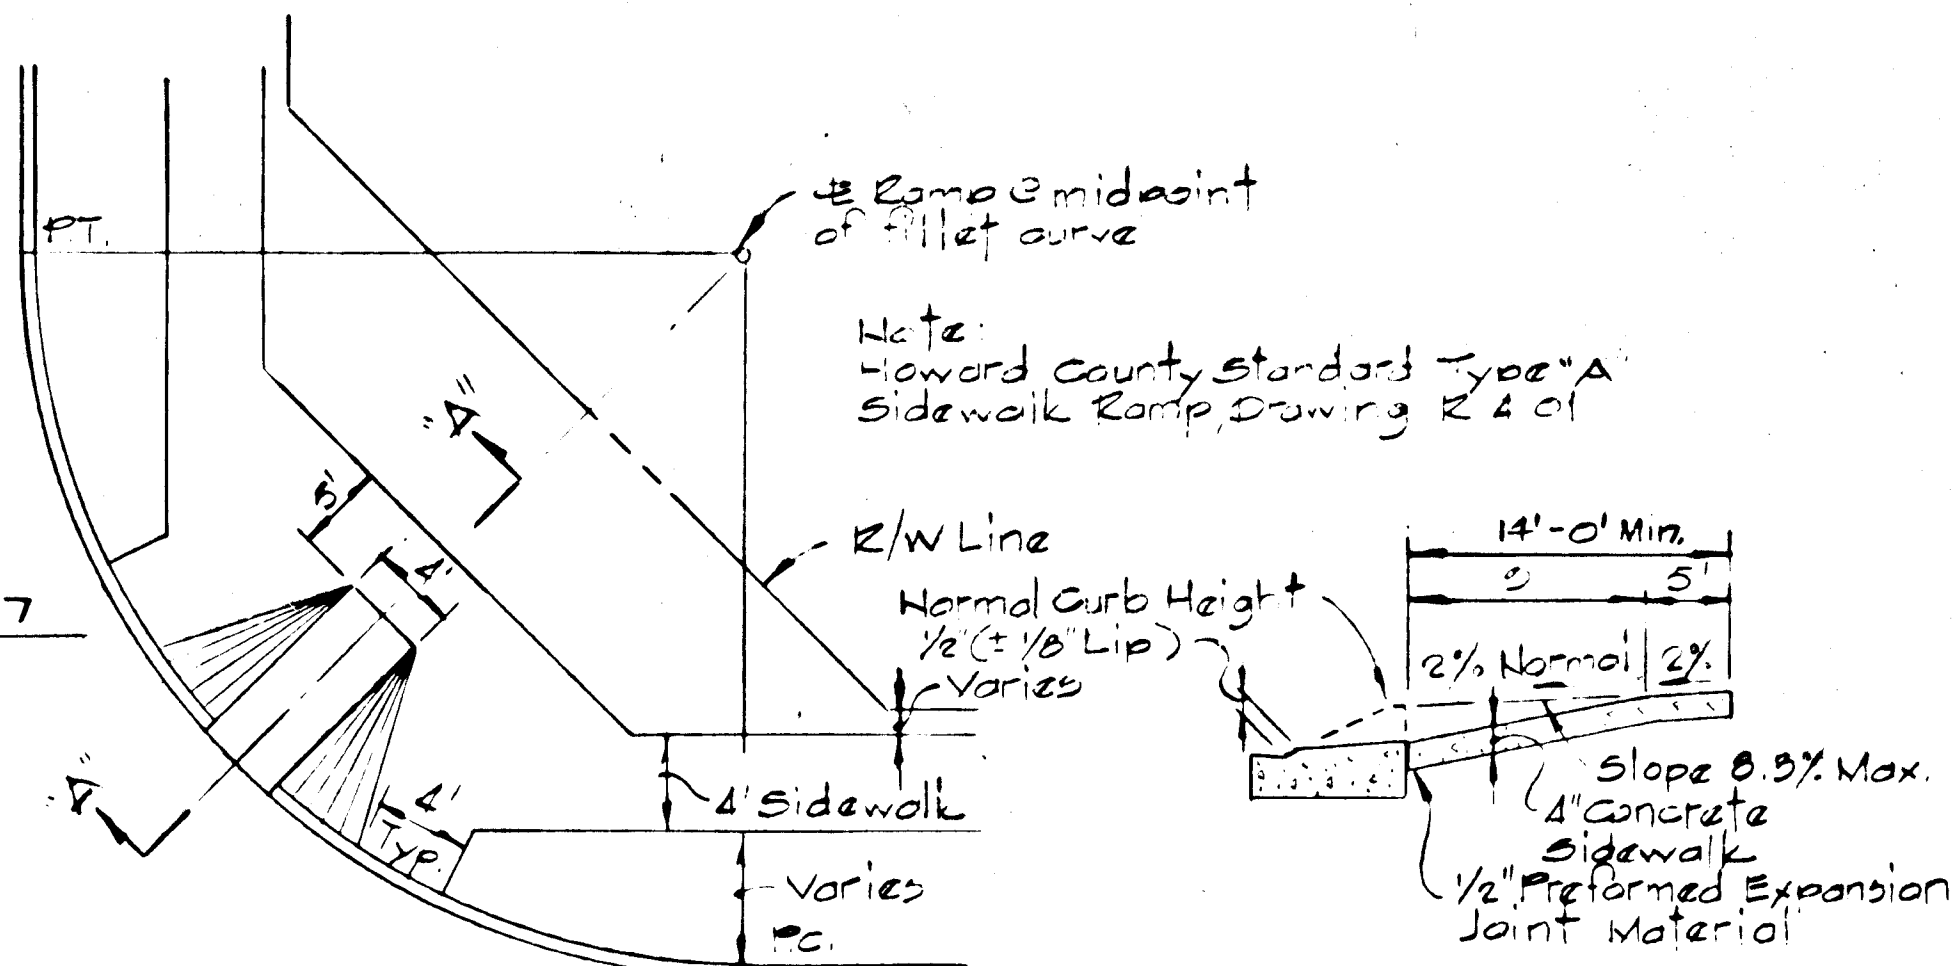 P.T.
℄ Ramp @ midpoint
of fillet curve
Note:
Howard County Standard Type "A"
Sidewalk Ramp, Drawing R 4 01
"A"
5'
4'
R/W Line
7
Normal Curb Height
1/2" (± 1/8" Lip)
Varies
14'-0" Min.
9
5'
2% Normal
2%
"A"
4'
Typ.
4' Sidewalk
Varies
P.C.
Slope 8.3% Max.
4" Concrete
Sidewalk
1/2" Preformed Expansion
Joint Material